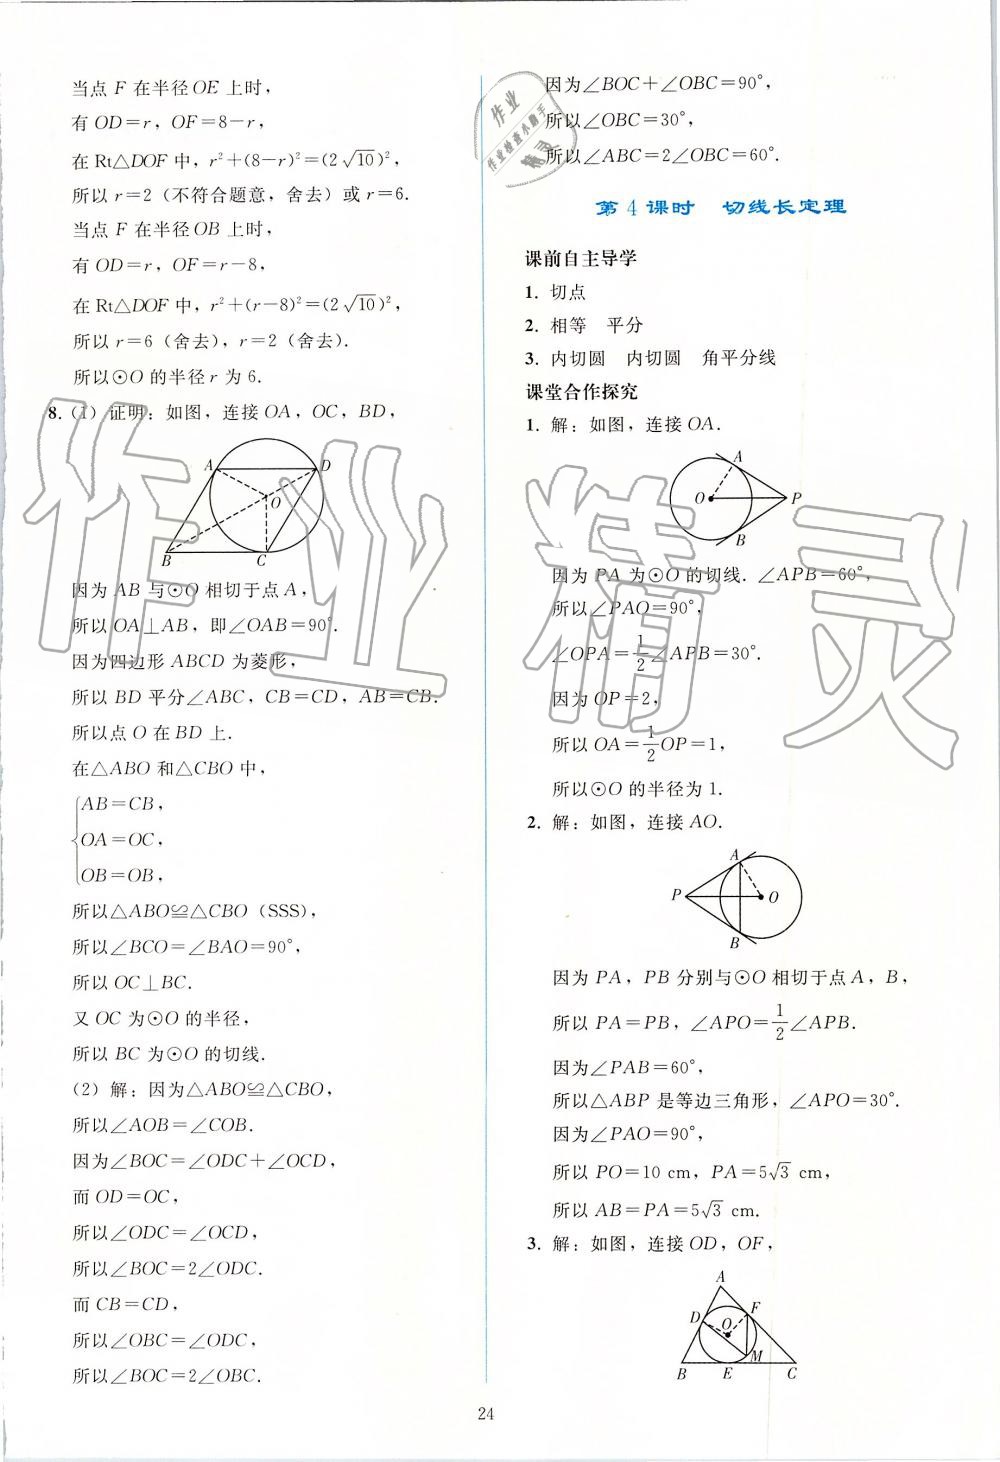 当点 F 在半径 OE 上时，
有 OD=r，OF=8-r，
在 Rt△DOF 中，r²+(8-r)²=(2√10)²，
所以 r=2（不符合题意，舍去）或 r=6.
当点 F 在半径 OB 上时，
有 OD=r，OF=r-8，
在 Rt△DOF 中，r²+(r-8)²=(2√10)²，
所以 r=6（舍去），r=2（舍去）.
所以⊙O 的半径 r 为 6.
8.（1）证明：如图，连接 OA，OC，BD，
A D O B C
因为 AB 与⊙O 相切于点 A，
所以 OA⊥AB，即∠OAB=90°.
因为四边形 ABCD 为菱形，
所以 BD 平分∠ABC，CB=CD，AB=CB.
所以点 O 在 BD 上.
在△ABO 和△CBO 中，
AB=CB，
OA=OC，
OB=OB，
所以△ABO≌△CBO（SSS），
所以∠BCO=∠BAO=90°，
所以 OC⊥BC.
又 OC 为⊙O 的半径，
所以 BC 为⊙O 的切线.
（2）解：因为△ABO≌△CBO，
所以∠AOB=∠COB.
因为∠BOC=∠ODC+∠OCD，
而 OD=OC，
所以∠ODC=∠OCD，
所以∠BOC=2∠ODC.
而 CB=CD，
所以∠OBC=∠ODC，
所以∠BOC=2∠OBC.
因为∠BOC+∠OBC=90°，
所以∠OBC=30°，
所以∠ABC=2∠OBC=60°.
第 4 课时　切线长定理
课前自主导学
1. 切点
2. 相等　平分
3. 内切圆　内切圆　角平分线
课堂合作探究
1. 解：如图，连接 OA.
A O P B
因为 PA 为⊙O 的切线. ∠APB=60°，
所以∠PAO=90°，
∠OPA=1/2∠APB=30°.
因为 OP=2，
所以 OA=1/2OP=1，
所以⊙O 的半径为 1.
2. 解：如图，连接 AO.
A P O B
因为 PA，PB 分别与⊙O 相切于点 A，B，
所以 PA=PB，∠APO=1/2∠APB.
因为∠PAB=60°，
所以△ABP 是等边三角形，∠APO=30°.
因为∠PAO=90°，
所以 PO=10 cm，PA=5√3 cm，
所以 AB=PA=5√3 cm.
3. 解：如图，连接 OD，OF，
A D F O M B E C
24
作业
作业检查小助手
精灵
作业精灵